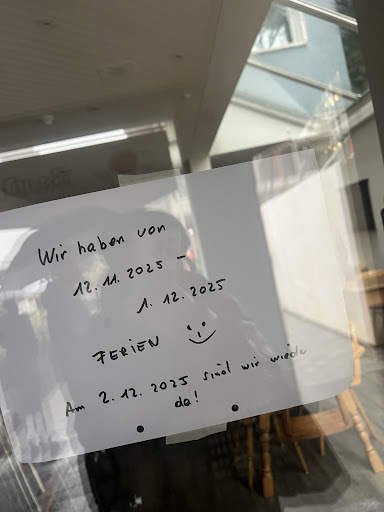 Wir haben von
12.11.2025 -
1.12.2025
FERIEN
Am 2.12.2025 sind wir wieder
da!